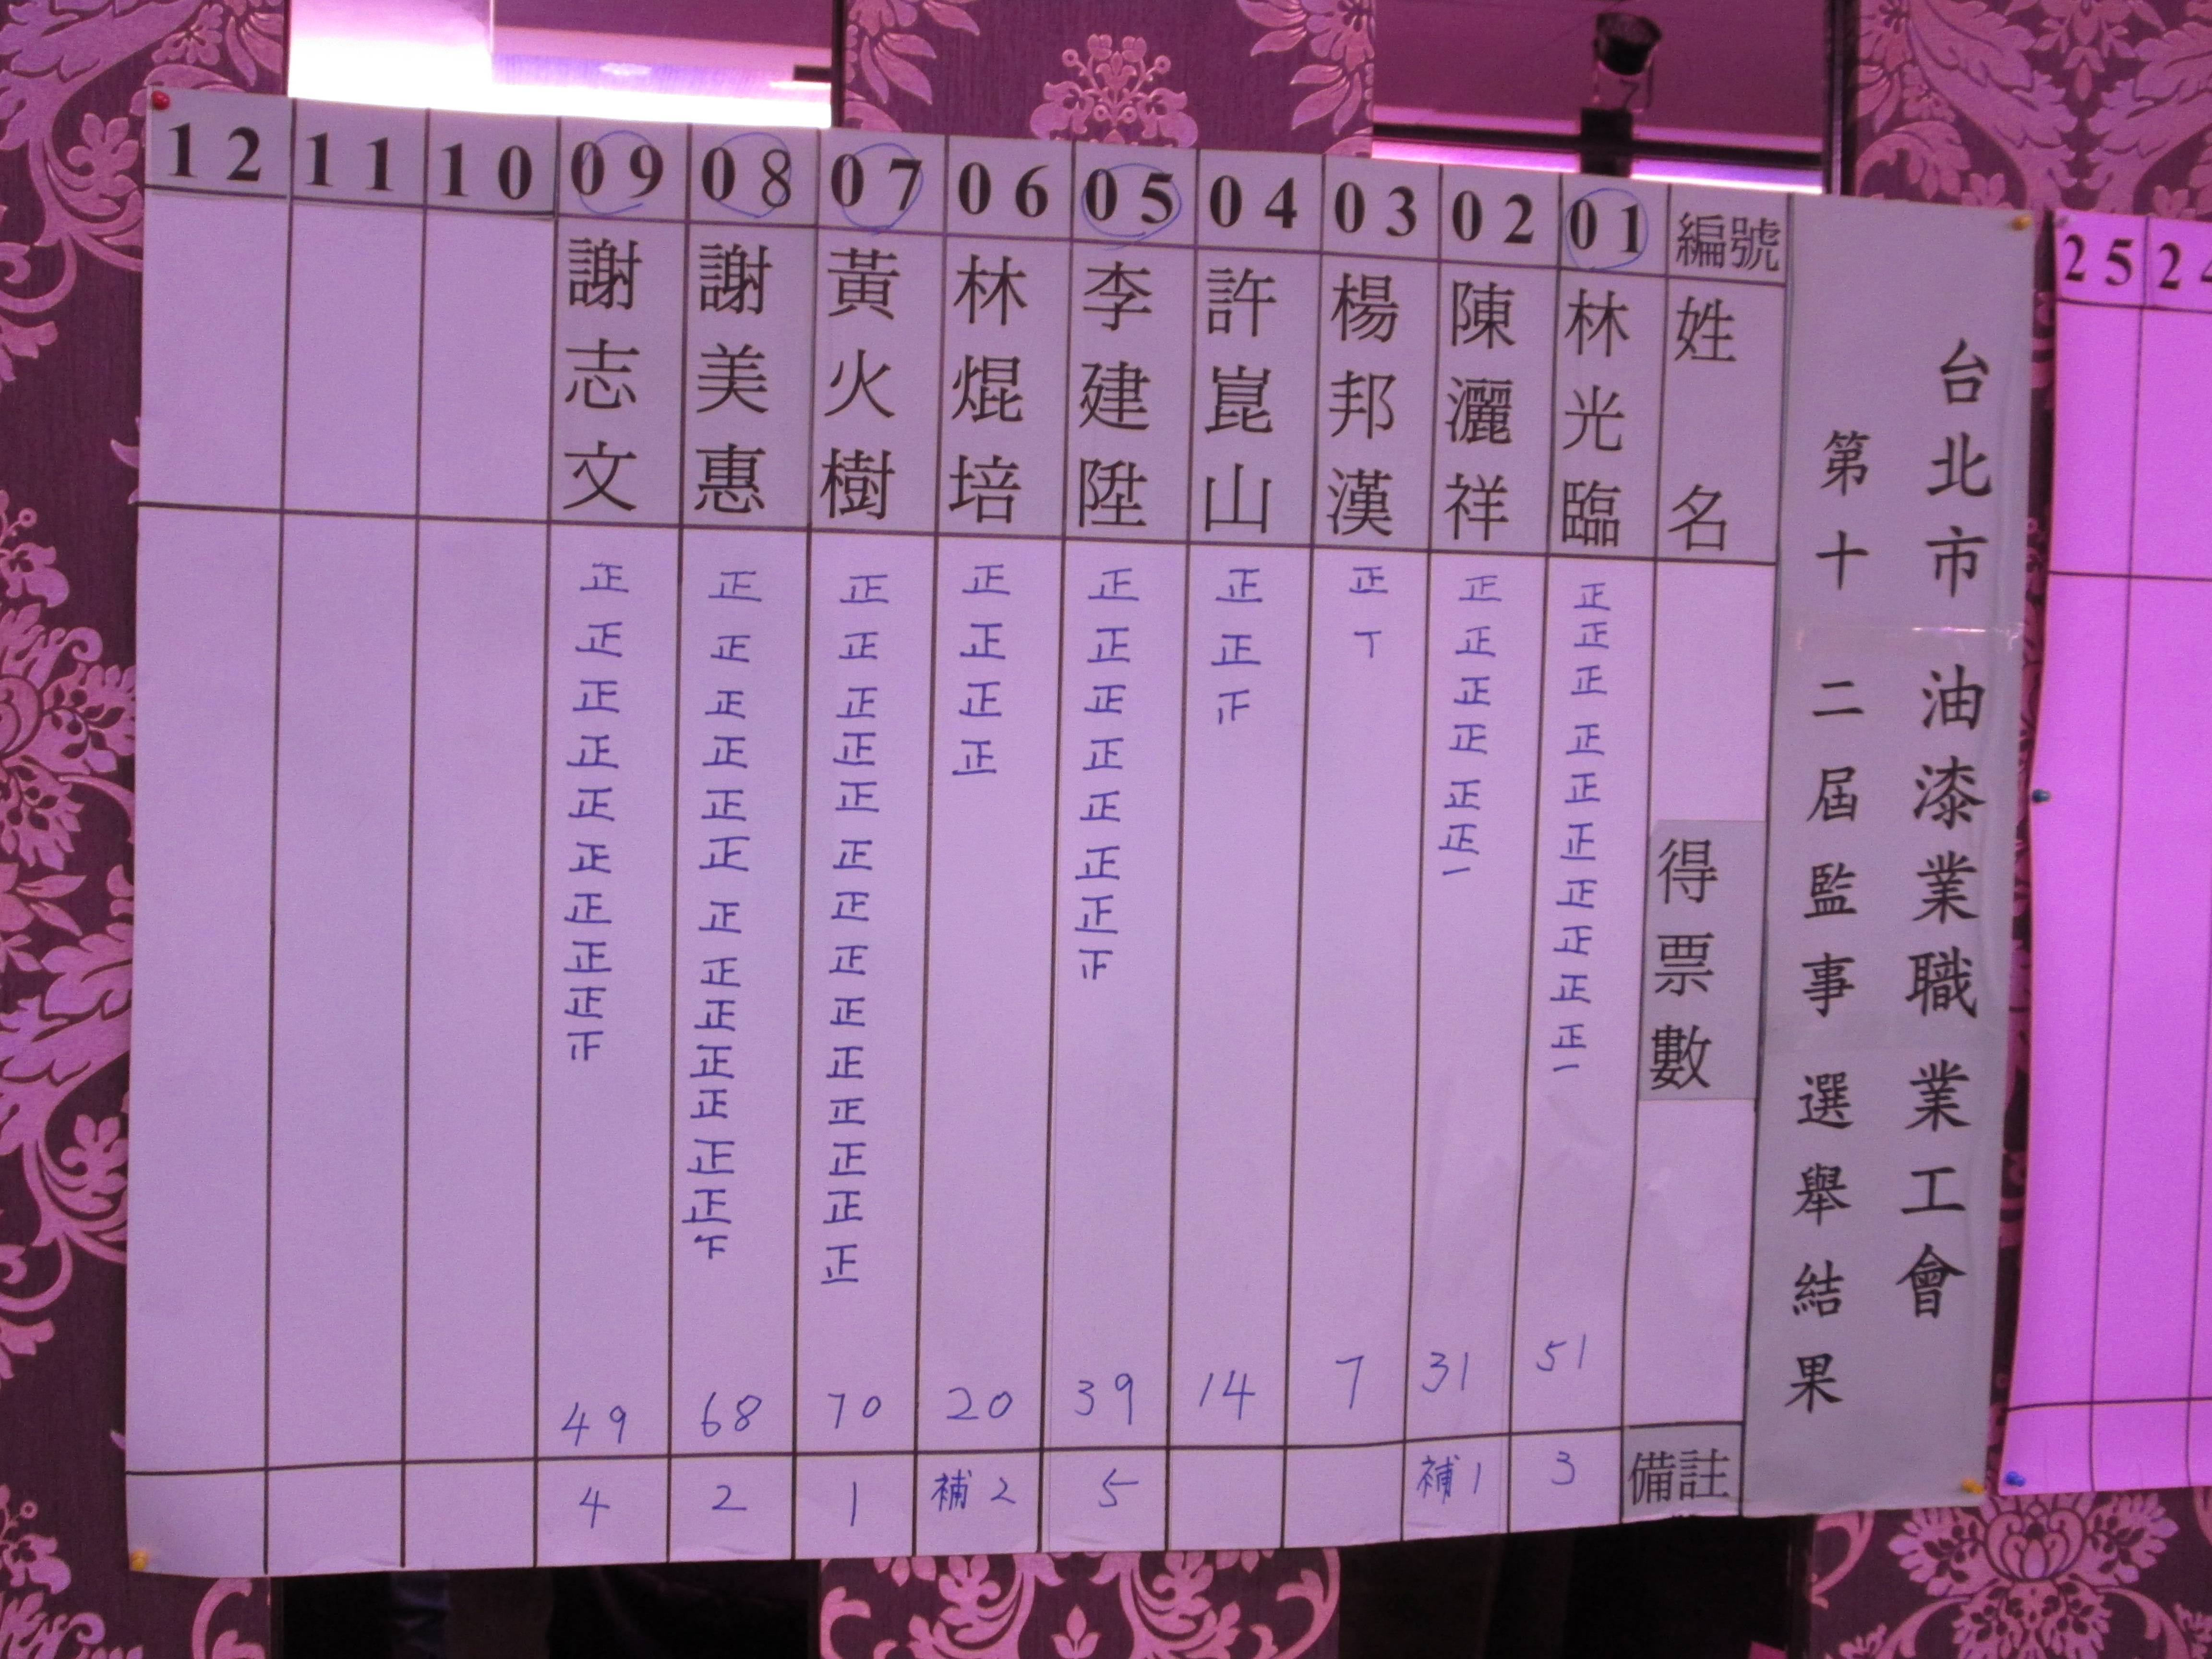 台北市油漆業職業工會
第十二屆監事選舉結果
編號 姓名 得票數 備註
01 林光臨 正正正正正正正正正正一 51 3
02 陳灑祥 正正正正正正一 31 補1
03 楊邦漢 正丅 7
04 許崑山 正正 14
05 李建陞 正正正正正正正 39 5
06 林焜培 正正正正 20 補2
07 黃火樹 正正正正正正正正正正正正正正 70 1
08 謝美惠 正正正正正正正正正正正正正下 68 2
09 謝志文 正正正正正正正正正 49 4
10
11
12
25
24